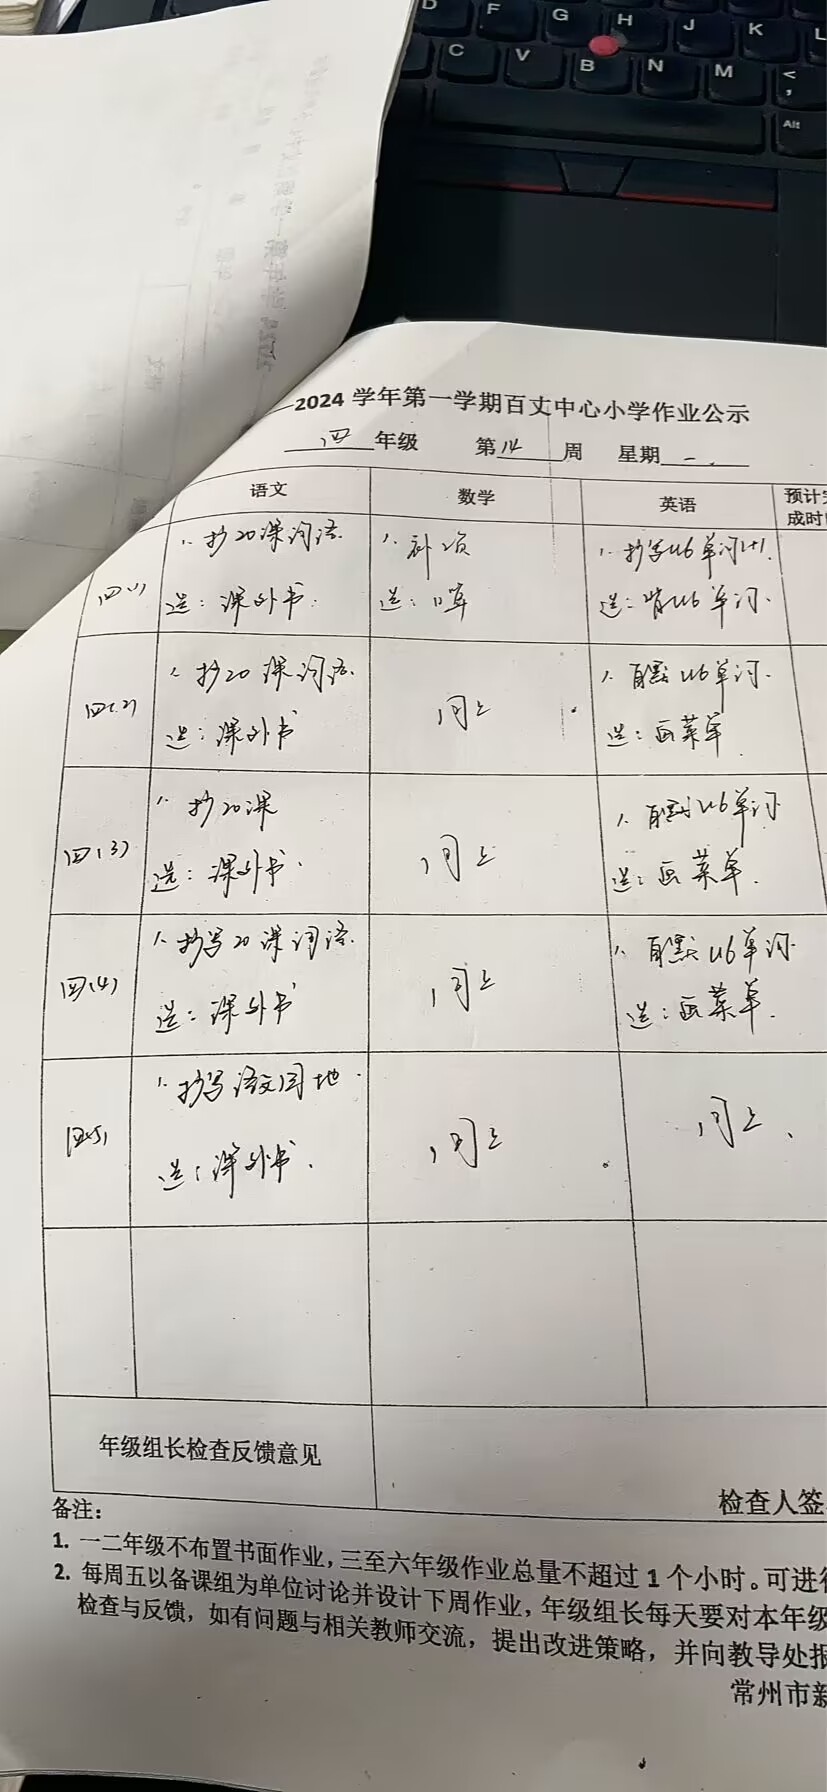 D F G H J K L
C V B N M <
,
Alt
2024 学年第一学期百丈中心小学作业公示
四 年级 第 14 周 星期 一
语文 数学 英语 预计完
成时间
四(1) 1. 抄20课词语. 1. 补 1. 抄写U6单词1+1.
选: 课外书. 选: 口算 选: 背U6单词.
四(2) 1. 抄20课词语. 同上 1. 自默U6单词.
选: 课外书 选: 画菜单
四(3) 1. 抄20课 同上 1. 自默U6单词
选: 课外书. 选: 画菜单.
四(4) 1. 抄写20课词语. 同上 1. 自默U6单词.
选: 课外书 选: 画菜单.
四(5) 1. 抄写语文园地. 同上 同上、
选: 课外书.
年级组长检查反馈意见
检查人签
备注:
1. 一二年级不布置书面作业,三至六年级作业总量不超过 1 个小时。可进行
2. 每周五以备课组为单位讨论并设计下周作业,年级组长每天要对本年级
检查与反馈,如有问题与相关教师交流,提出改进策略,并向教导处报
常州市新